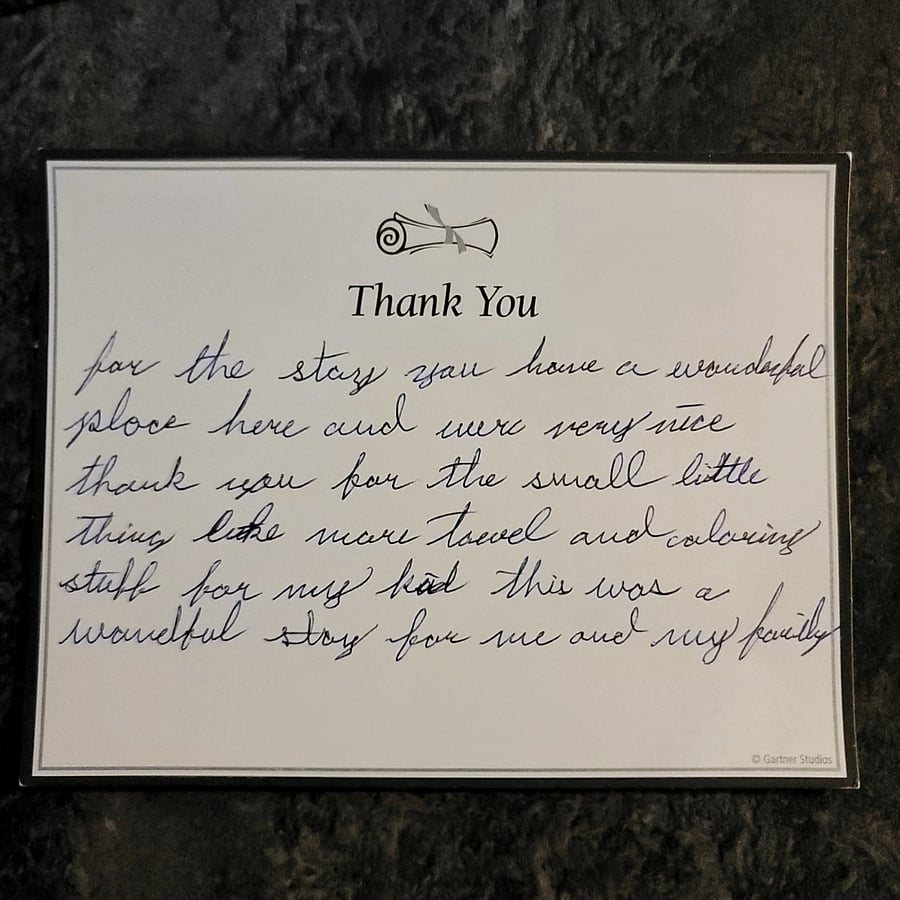 Thank You
for the stay you have a wonderful
place here and were very nice
thank you for the small little
thing like more towel and coloring
stuff for my kid this was a
wondful stay for me and my faily
© Gartner Studios